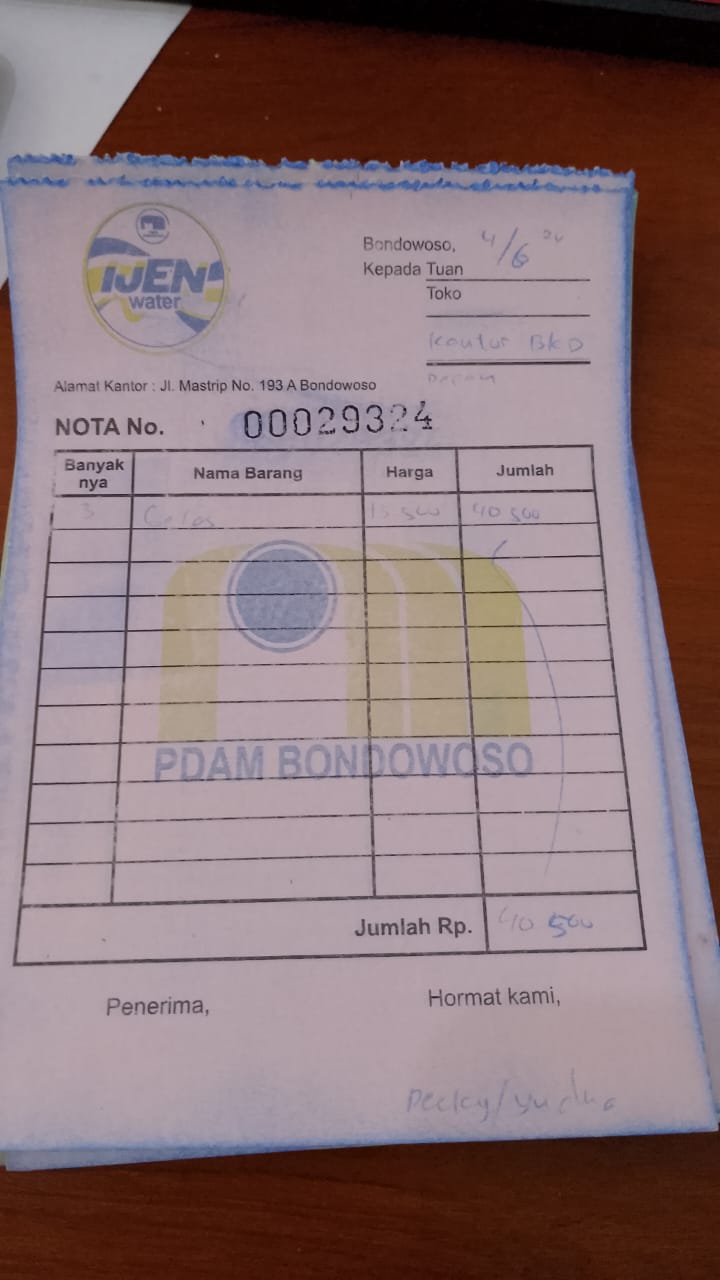 IJEN
water
Bondowoso, 4/6 24
Kepada Tuan
Toko
Kantor BKD
Alamat Kantor : Jl. Mastrip No. 193 A Bondowoso
NOTA No. 00029324
Banyak nya Nama Barang Harga Jumlah
3 Gelas 13 500 40 500
PDAM BONDOWOSO
Jumlah Rp. 40 500
Penerima, Hormat kami,